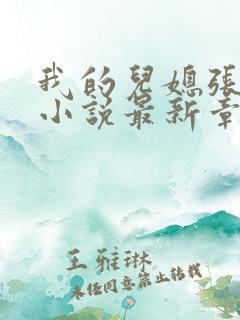 我的兒媳張
小説最新章
王雅琳
未经同意禁止转载